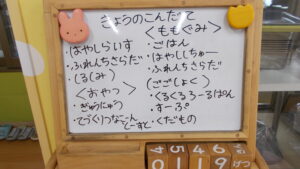 きょうのこんだて
<ももぐみ>
・はやしらいす
・ふれんちさらだ
(くるしみ)
<おやつ>
・ぎゅうにゅう
・てづくりつなこーん
とーすと
・ごはん
・はやししちゅー
・ふれんちさらだ
(ごごしょく)
・くるくるろーるぱん
・すーぷ
・くだもの